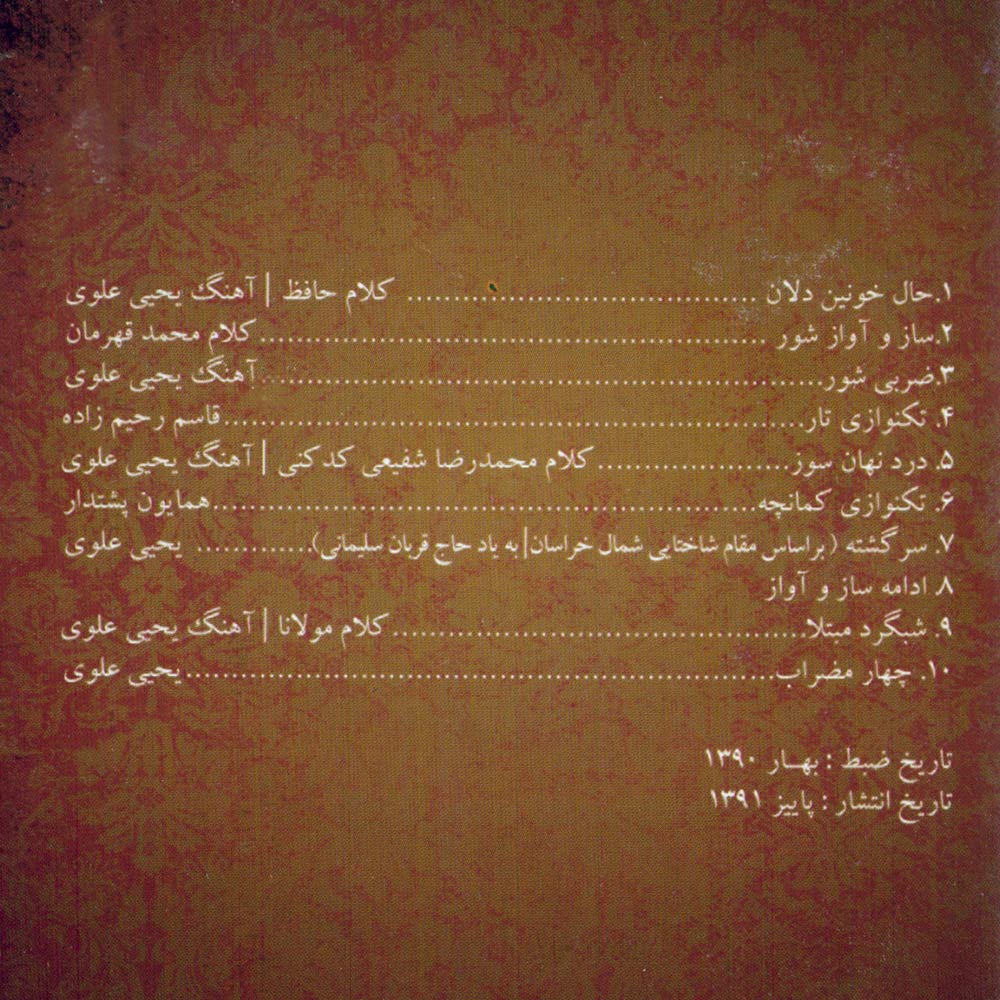 ۱.حال خونین دلان ..................................... کلام حافظ | آهنگ یحیی علوی
۲.ساز و آواز شور ......................................................... کلام محمد قهرمان
۳.ضربی شور............................................................آهنگ یحیی علوی
۴. تکنوازی تار..............................................................قاسم رحیم زاده
۵. درد نهان سوز.....................کلام محمدرضا شفیعی کدکنی | آهنگ یحیی علوی
۶. تکنوازی کمانچه..........................................................همایون پشتدار
۷. سرگشته (براساس مقام شاختایی شمال خراسان|به یاد حاج قربان سلیمانی)............. یحیی علوی
۸. ادامه ساز و آواز
۹. شبگرد مبتلا............................................کلام مولانا | آهنگ یحیی علوی
۱۰. چهار مضراب...............................................................یحیی علوی
تاریخ ضبط : بهـار ۱۳۹۰
تاریخ انتشار : پاییز ۱۳۹۱